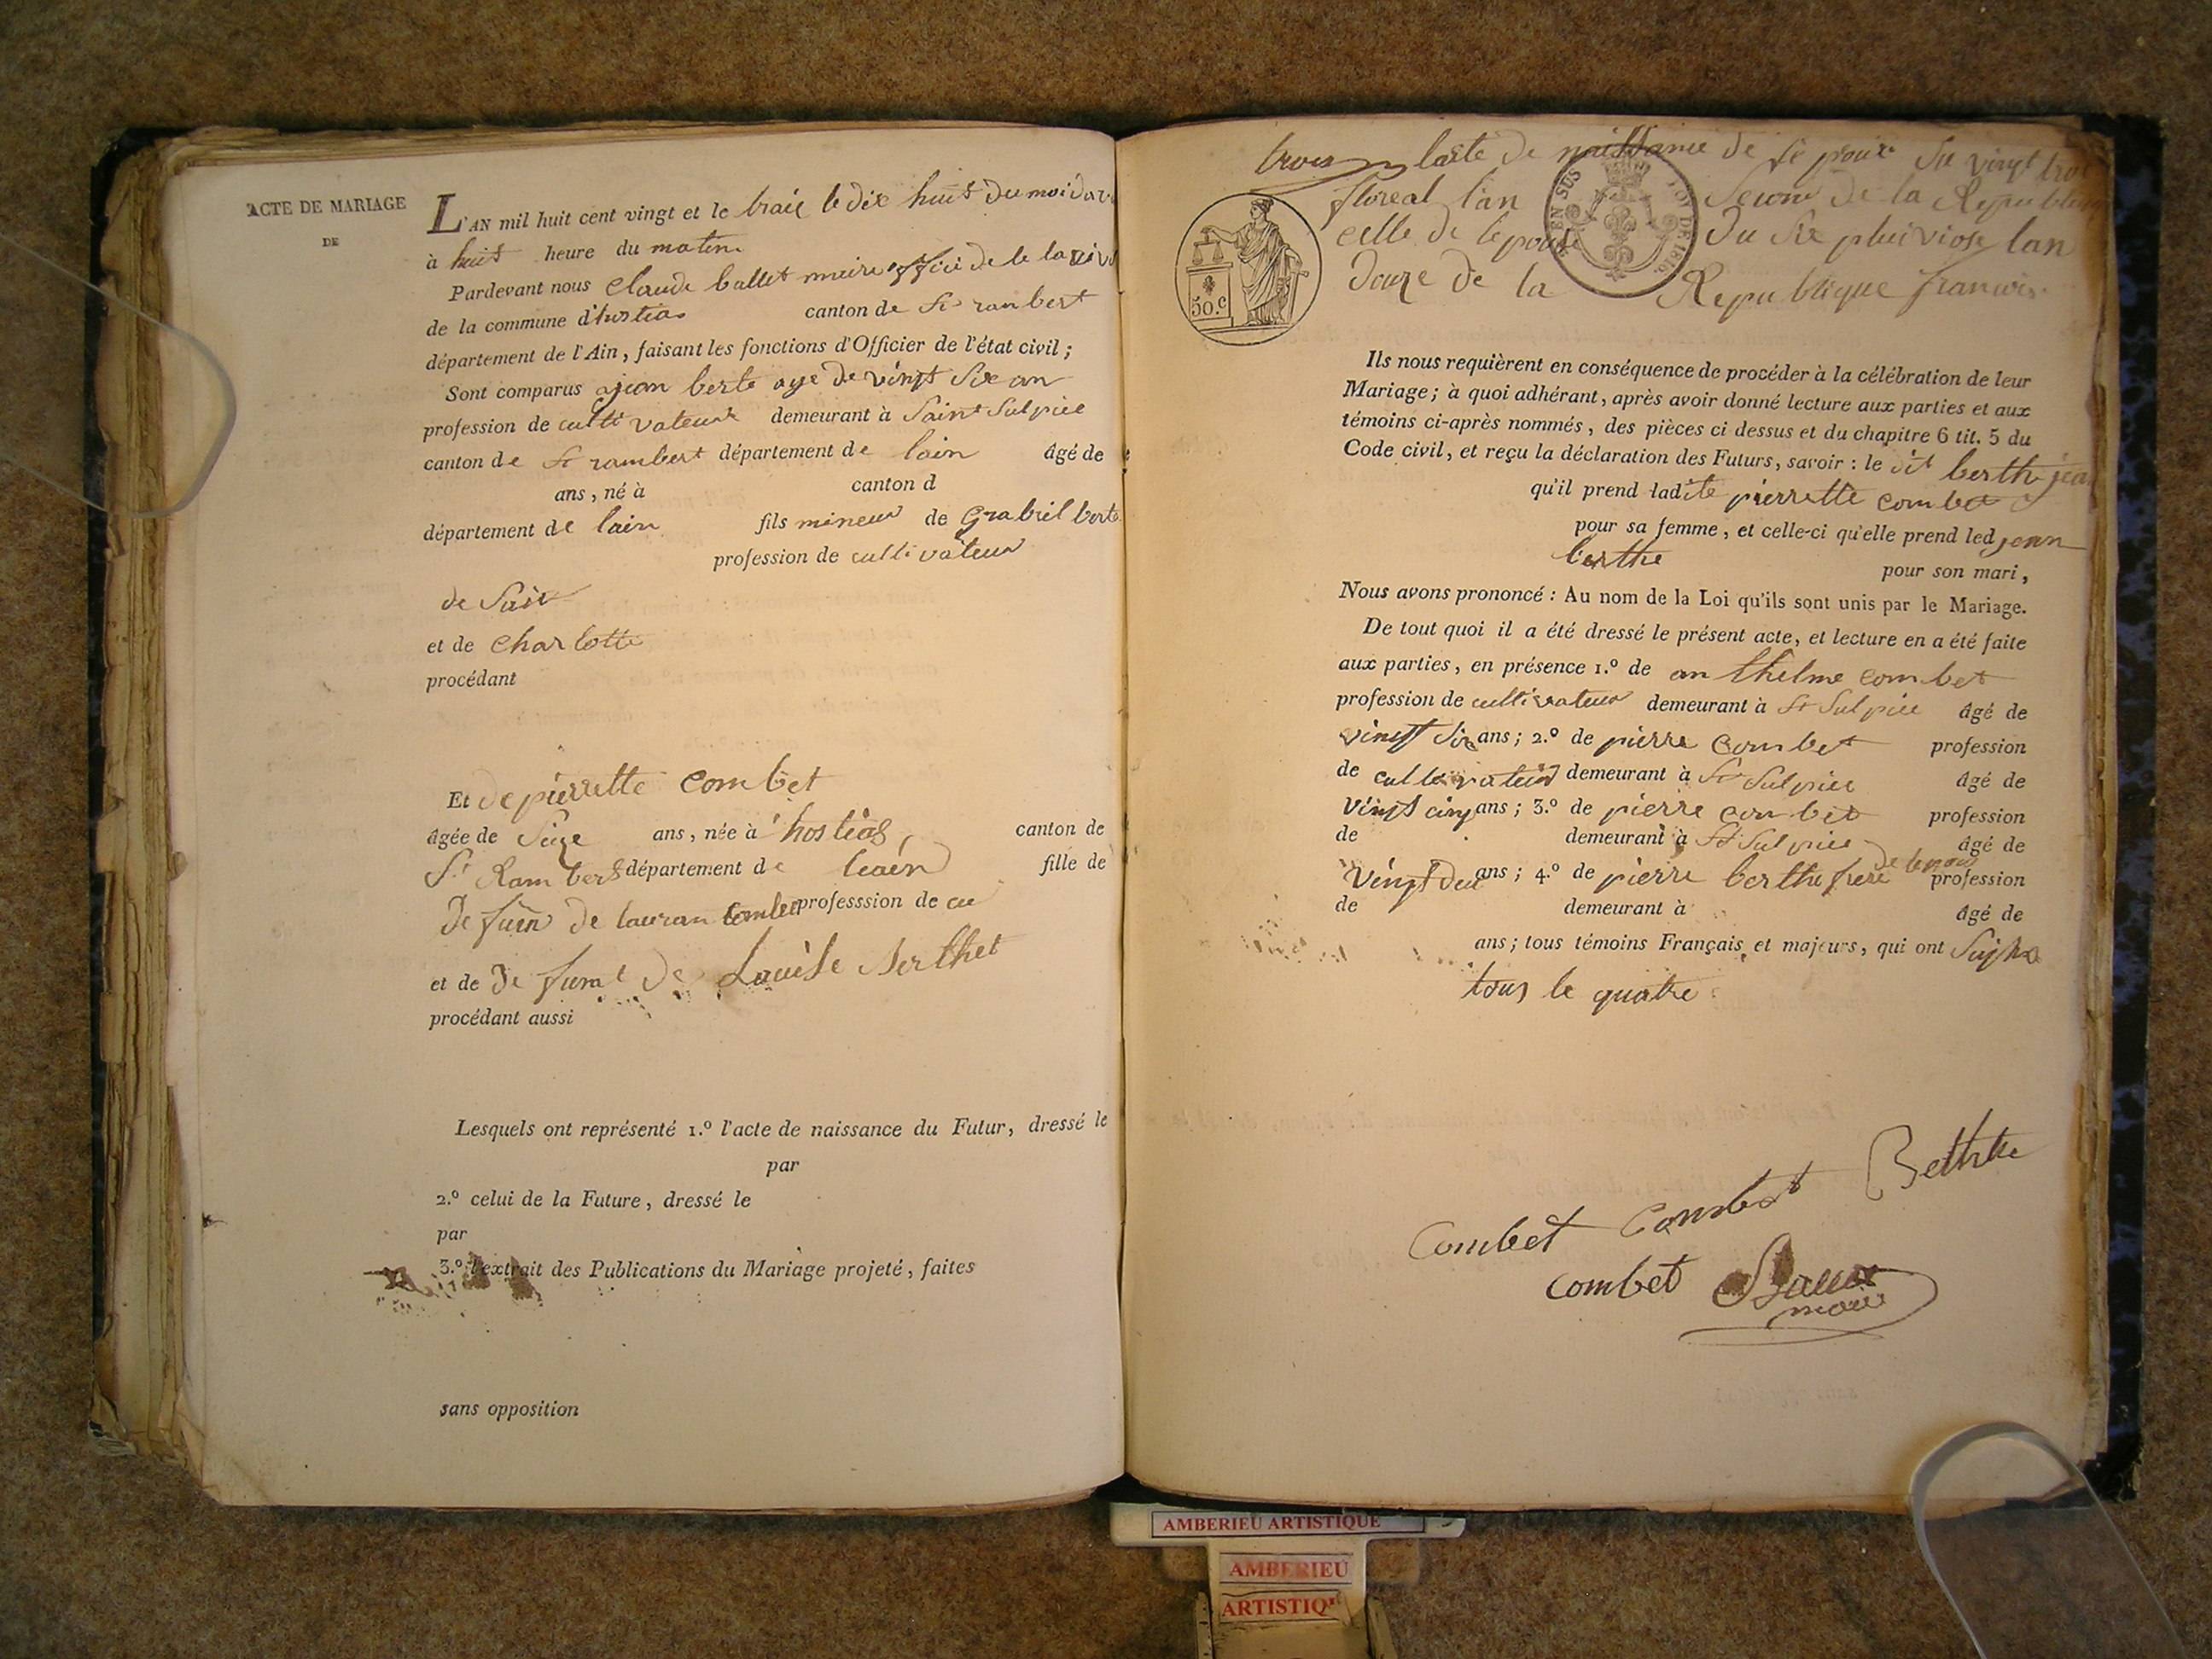 ACTE DE MARIAGE
DE
L'AN mil huit cent vingt et le traie le dix huit du moi
à huit heure du matin
Pardevant nous Claude ballet maire
de la commune d'hostias canton de St rambert
département de l'Ain, faisant les fonctions d'Officier de l'état civil;
Sont comparus jean berte age de vingt Six an
profession de cultivateur demeurant à Saint Sulpice
canton de St rambert département de lain âgé de
ans, né à canton d
département de lain fils mineur de Grabriel berte
profession de cultivateur
de
et de Charlotte
procédant
Et de pierrette Combet
âgée de Sieze ans, née à hostias canton de
St Rambert département de fille de
De de lauran combet professsion de cu
et de De de Louise Berthet
procédant aussi
Lesquels ont représenté 1.º l'acte de naissance du Futur, dressé le
par
2.º celui de la Future, dressé le
par
3.º l'extrait des Publications du Mariage projeté, faites
sans opposition
trois lacte de naissance de le poux du vingt
floreal l'an Seconde de la Republique
celle de lepouse Du Six pluiviose lan
Douze de la Republique
EN SUS LOI DE 1816
50.c
Ils nous requièrent en conséquence de procéder à la célébration de leur
Mariage; à quoi adhérant, après avoir donné lecture aux parties et aux
témoins ci-après nommés, des pièces ci dessus et du chapitre 6 tit. 5 du
Code civil, et reçu la déclaration des Futurs, savoir : le dit berthe jean
qu'il prend ladite pierrette combet
pour sa femme, et celle-ci qu'elle prend led jean
berthe
pour son mari,
Nous avons prononcé : Au nom de la Loi qu'ils sont unis par le Mariage.
De tout quoi il a été dressé le présent acte, et lecture en a été faite
aux parties, en présence 1.º de an thelme combet
profession de cultivateur demeurant à St Sulpice âgé de
vingt Six ans; 2.º de pierre Combet profession
de cultivateur demeurant à St Sulpice âgé de
vingt cinq ans; 3.º de pierre combet profession
de demeurant à St Sulpice âgé de
Vingt Deu ans; 4.º de pierre berthe frere de lepoux profession
de demeurant à âgé de
ans; tous témoins Français et majeurs, qui ont
tous le quatre
Combet Combet Bethte
combet Ballet
maire
AMBERIEU ARTISTIQUE
AMBERIEU
ARTISTIQ